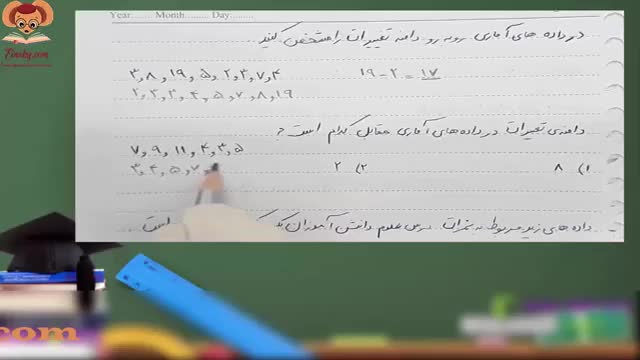 Year....... Month......... Day.........
در داده های آماری روبه رو دامنه تغییرات را مشخص کنید.
۳, ۸, ۱۹, ۵, ۲, ۳, ۷, ۴
۱۹ - ۲ = ۱۷
۲, ۳, ۳, ۴, ۵, ۷, ۸, ۱۹
دامنه‌ی تغییرات در داده‌های آماری مقابل کدام است؟
۷, ۹, ۱۱, ۴, ۳, ۵
۱) ۸ ۲) ۲
۳, ۴, ۵, ۷,
داده های زیر مربوط به نمرات درس علوم دانش آموزان است
.com